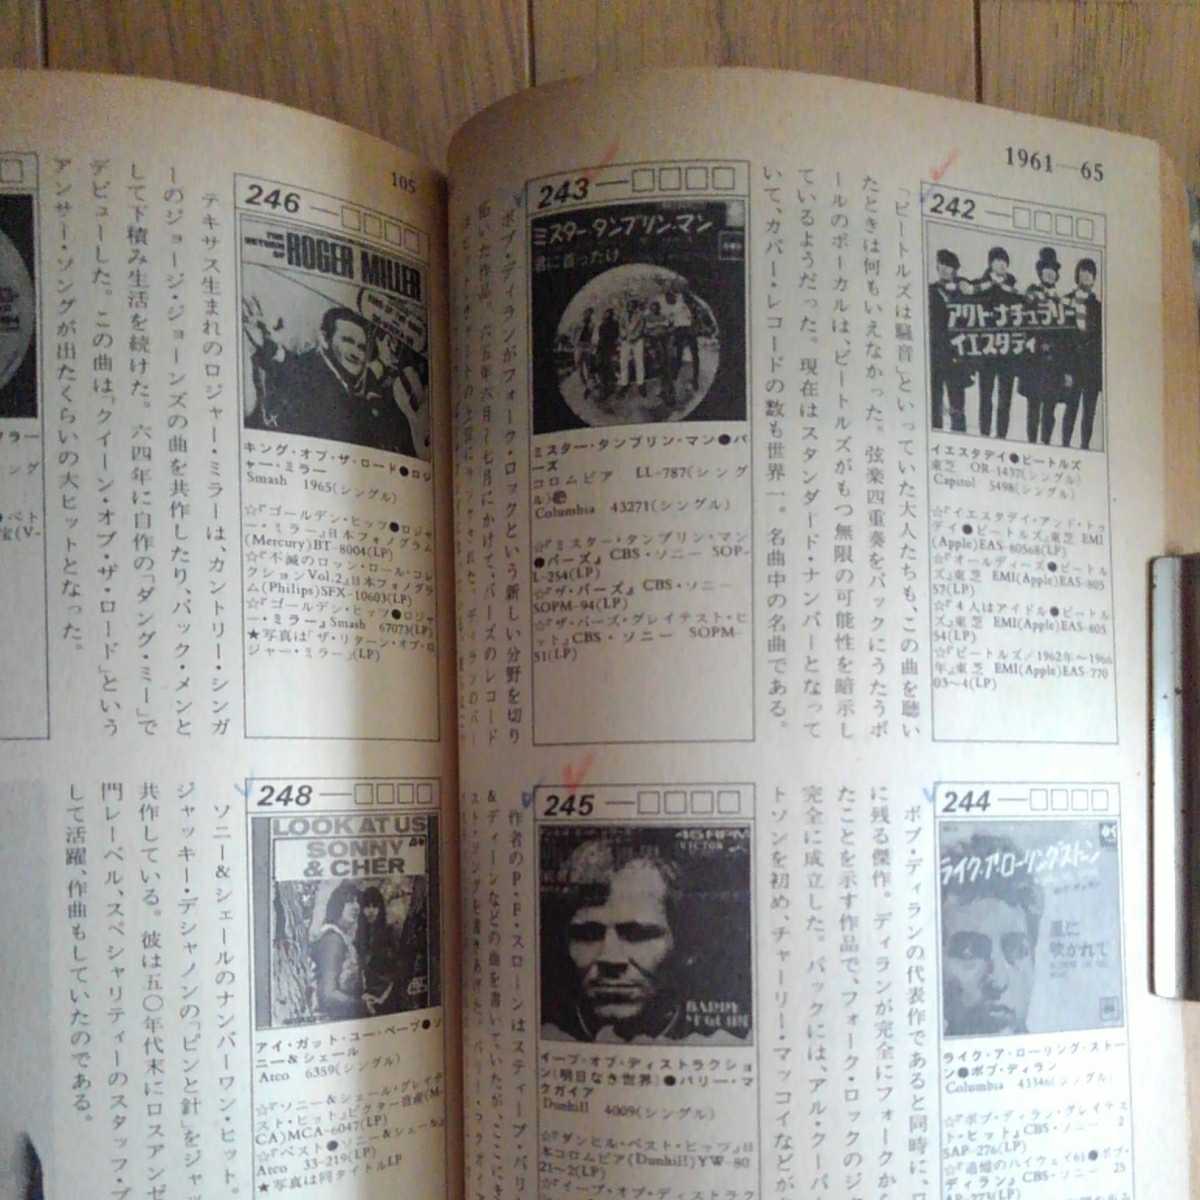 1961—65
242
アクト・ナチュラリー
イエスタデイ
イエスタデイ●ビートルズ
東芝 OR-1437(シングル)
Capitol 5498(シングル)
☆『イエスタデイ・アンド・トゥ
デイ●ビートルズ』東芝 EMI
(Apple)EAS-80568(LP)
☆『オールディーズ●ビートル
ズ』東芝 EMI(Apple)EAS-805
57(LP)
☆『4人はアイドル●ビートル
ズ』東芝 EMI(Apple)EAS-805
54(LP)
☆『ビートルズ/1962年〜1966
年』東芝 EMI(Apple)EAS-770
03〜4(LP)
「ビートルズは騒音」といっていた大人たちも、この曲を聴い
たときは何もいえなかった。弦楽四重奏をバックにうたうポ
ールのボーカルは、ビートルズがもつ無限の可能性を暗示し
ているようだった。現在はスタンダード・ナンバーとなって
いて、カバー・レコードの数も世界一。名曲中の名曲である。
243
ミスター・タンブリン・マン
君に首ったけ
ミスター・タンブリン・マン●バ
ーズ
コロムビア LL-787(シング
ル)
Columbia 43271(シングル)
☆『ミスター・タンブリン・マン
●バーズ』CBS・ソニー SOP-
L-254(LP)
☆『ザ・バーズ』CBS・ソニー
SOPM-94(LP)
☆『ザ・バーズ・グレイテスト・ヒ
ット』CBS・ソニー SOPM-
51(LP)
ボブ・ディランがフォーク・ロックという新しい分野を切り
拓いた作品。六五年六月〜七月にかけて、バーズのレコード
244
ライク・ア・ローリング・ストーン
風に
吹かれて
ライク・ア・ローリング・ストー
ン●ボブ・ディラン
Columbia 43346(シングル)
☆『ボブ・ディラン・グレイテス
ト・ヒット』CBS・ソニー
SAP-276(LP)
☆『追憶のハイウェイ61●ボブ・
ディラン』CBS・ソニー 25
ボブ・ディランの代表作であると同時に、ロ
に残る傑作。ディランが完全にフォークか
たことを示す作品で、フォーク・ロックのジ
完全に成立した。バックには、アル・クーパ
トソンを初め、チャーリー・マッコイなどが
245
45RPM
VICTOR
BARRY
McGUIRE
イーブ・オブ・ディストラクショ
ン(明日なき世界)●バリー・マ
クガイア
Dunhill 4009(シングル)
☆『ダンヒル・ベスト・ヒップ』日
本コロムビア(Dunhill)YW-80
21〜2(LP)
☆『イーブ・オブ・ディストラク
作者のP・F・スローンはスティーブ・バリ
&ディーンなどの曲を書いていたが、ここにき
105
246
THE RETURN OF
ROGER MILLER
キング・オブ・ザ・ロード●ロジ
ャー・ミラー
Smash 1965(シングル)
☆『ゴールデン・ヒップ●ロジャ
ー・ミラー』日本フォノグラム
(Mercury)BT-8004(LP)
☆『不滅のロックン・ロール・コレ
クションVol.2』日本フォノグラ
ム(Philips)SFX-10603(LP)
☆『ゴールデン・ヒップ●ロジャ
ー・ミラー』Smash 67073(LP)
★写真は『ザ・リターン・オブ・ロ
ジャー・ミラー』(LP)
テキサス生まれのロジャー・ミラーは、カントリー・シンガ
ーのジョージ・ジョーンズの曲を共作したり、バック・メンと
して下積み生活を続けた。六四年に自作の「ダング・ミー」で
デビューした。この曲は「クイーン・オブ・ザ・ロード」という
アンサー・ソングが出たくらいの大ヒットとなった。
248
LOOK AT US
SONNY
& CHER
アイ・ガット・ユー・ベーブ●ソ
ニー&シェール
Atco 6359(シングル)
☆『ソニー&シェール・グレイテ
スト・ヒット』ビクター音産(M-
CA)MCA-6047(LP)
☆『ベスト●ソニー&シェール』
Atco 33-219(LP)
★写真は同タイトルLP
ソニー&シェールのナンバーワン・ヒット。
ジャッキー・デシャノンの「ピンと針」をジャッ
共作している。彼は五〇年代末にロスアンゼ
門レーベル、スペシャリティーのスタッフ・プ
して活躍、作曲もしていたのである。